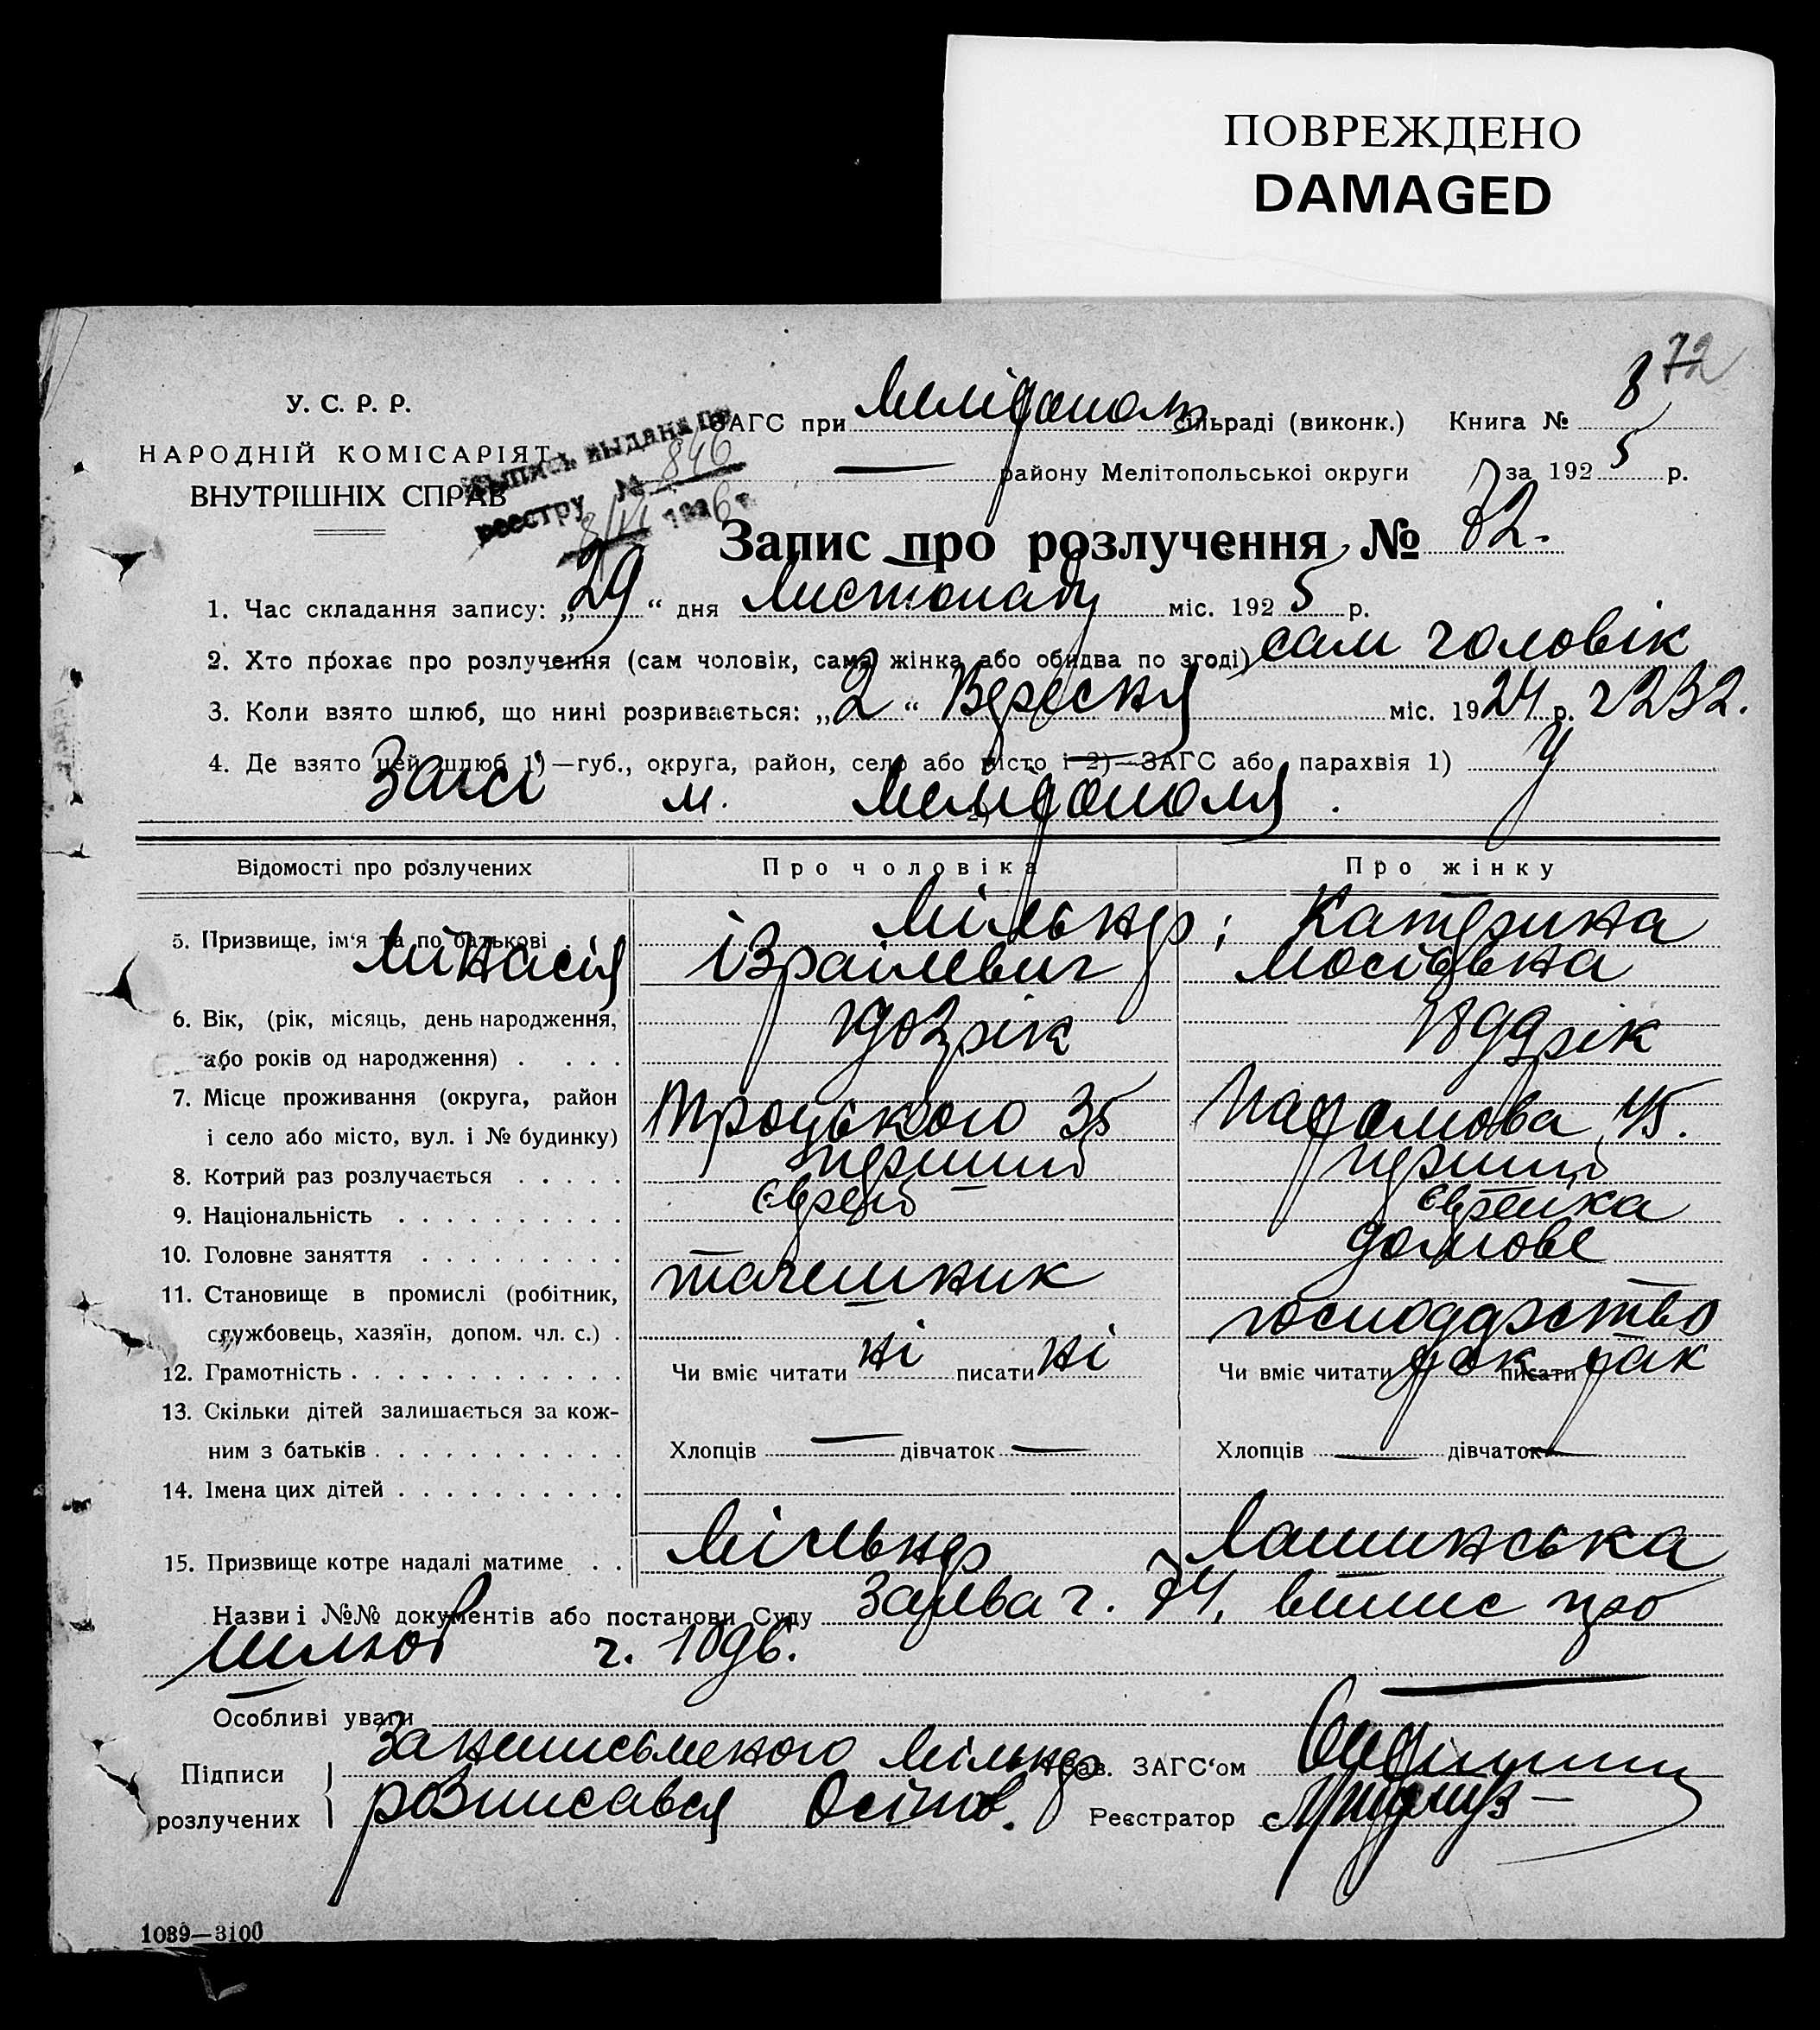 ПОВРЕЖДЕНО
DAMAGED
72
У. С. Р. Р.
НАРОДНІЙ КОМІСАРІЯТ
ВНУТРІШНІХ СПРАВ
выдана
реестру № 846
1926 г.
ЗАГС при Мелітополь сільраді (виконк.) Книга № 8
— району Мелітопольської округи за 1925 р.
Запис про розлучення № 72.
1. Час складання запису: „29“ дня Листопаду міс. 1925 р.
2. Хто прохає про розлучення (сам чоловік, сама жінка або обидва по згоді) сам чоловік
3. Коли взято шлюб, що нині розривається: „2“ Вересня міс. 1924 р. ч 232.
4. Де взято цей шлюб 1)—губ., округа, район, село або місто і 2)—ЗАГС або парахвія 1) У
Загсі м. Мелітополя.
Відомості про розлучених
Про чоловіка
Про жінку
5. Призвище, ім‘я та по батькові
Мільнер; Катерина
Ізраілевич Мосієвна
6. Вік, (рік, місяць, день народження,
або років од народження) . . . .
1903 рік 1899 рік
7. Місце проживання (округа, район
і село або місто, вул. і № будинку)
Троцького 35
8. Котрий раз розлучається . . . . .
перший перший
9. Національність . . . . . . . . . .
Єврей Єврейка
10. Головне заняття . . . . . . . . .
домове
11. Становище в промислі (робітник,
службовець, хазяїн, допом. чл. с.) .
господарство
12. Грамотність . . . . . . . . . . . .
Чи вміє читати ні писати ні Чи вміє читати так писати так
13. Скільки дітей залишається за кож-
ним з батьків . . . . . . . . . . .
Хлопців — дівчаток — Хлопців — дівчаток —
14. Імена цих дітей . . . . . . . . . .
15. Призвище котре надалі матиме . .
Мільнер Лашинська
Назви і №№ документів або постанови Суду Заява ч. 74, витис про
шлюб ч. 1096.
Особливі уваги
Підписи
розлучених
За неписьменого Мільнер
розписався Осіпов.
Зав. ЗАГС‘ом
Реєстратор
1039—3100